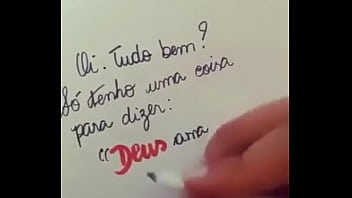 Oi. Tudo bem?
Só tenho uma coisa
para dizer:
"Deus ama